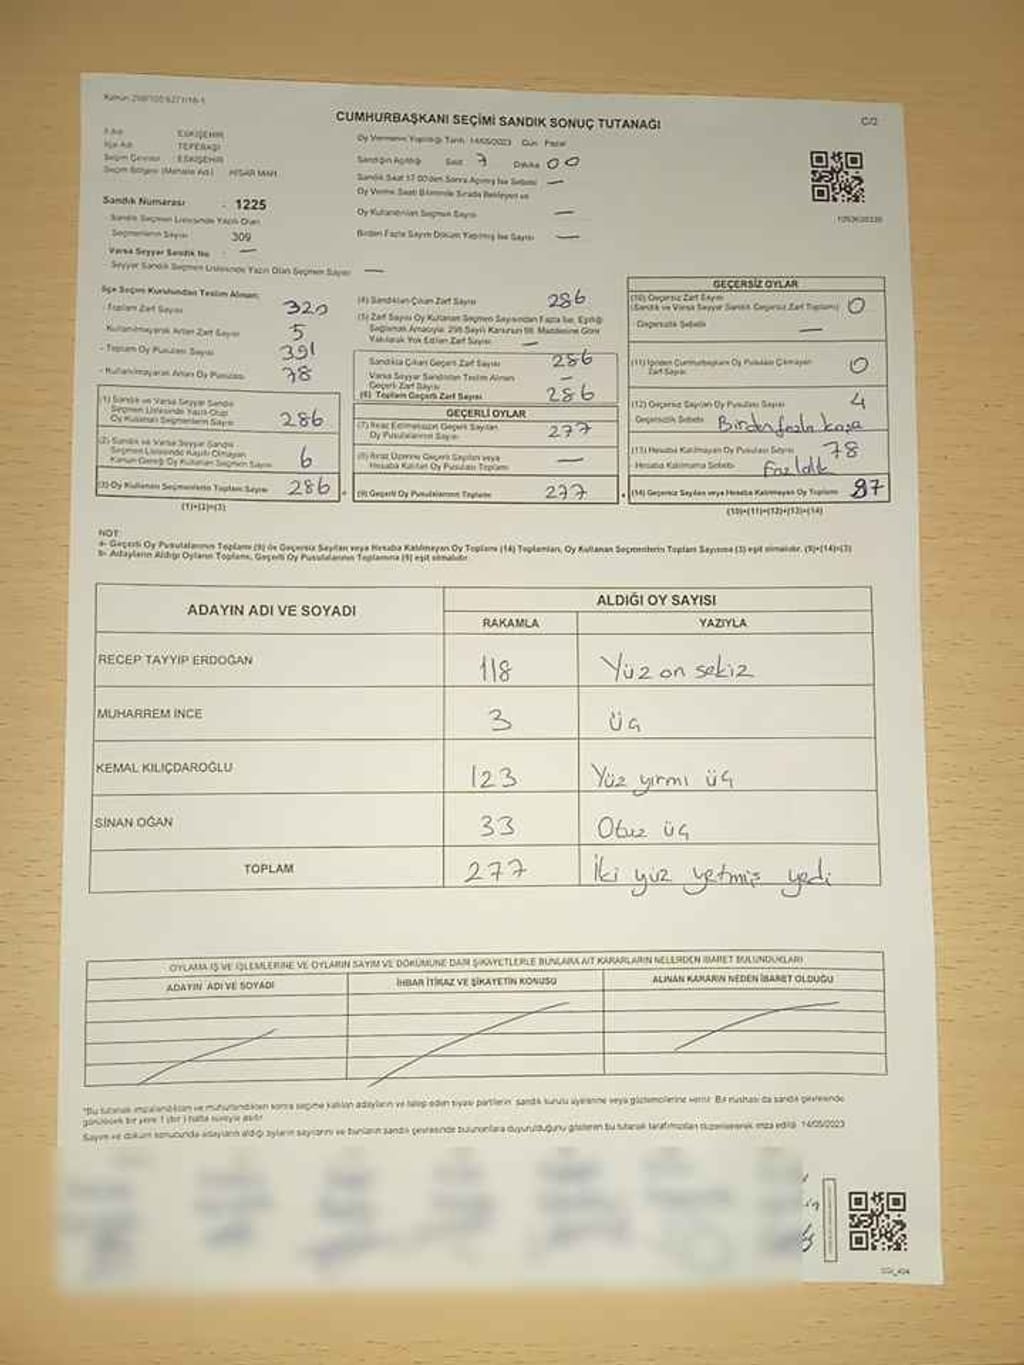 Kanun 298/105 6271/16-1
CUMHURBAŞKANI SEÇİMİ SANDIK SONUÇ TUTANAĞI
C/2
İl Adı ESKİŞEHİR
İlçe Adı TEPEBAŞI
Seçim Çevresi ESKİŞEHİR
Seçim Bölgesi (Mahalle Ad.) HİSAR MAH.
Sandık Numarası 1225
- Sandık Seçmen Listesinde Yazılı Olan
Seçmenlerin Sayısı 309
Varsa Seyyar Sandık No : —
- Seyyar Sandık Seçmen Listesinde Yazılı Olan Seçmen Sayısı —
Oy Vermenin Yapıldığı Tarih 14/05/2023 Gün Pazar
Sandığın Açıldığı Saat 7 Dakika 00
Sandık Saat 17.00'den Sonra Açılmış İse Sebebi —
Oy Verme Saati Bitiminde Sırada Bekleyen ve
Oy Kullandırılan Seçmen Sayısı —
Birden Fazla Sayım Döküm Yapılmış İse Sayısı —
İlçe Seçim Kurulundan Teslim Alınan:
- Toplam Zarf Sayısı 320
- Kullanılmayarak Artan Zarf Sayısı 5
- Toplam Oy Pusulası Sayısı 391
- Kullanılmayarak Artan Oy Pusulası 78
(1) Sandık ve Varsa Seyyar Sandık
Seçmen Listesinde Yazılı Olup
Oy Kullanan Seçmenlerin Sayısı 286
(2) Sandık ve Varsa Seyyar Sandık
Seçmen Listesinde Kayıtlı Olmayan
Kanun Gereği Oy Kullanan Seçmen Sayısı 6
(3) Oy Kullanan Seçmenlerin Toplam Sayısı 286
(1)+(2)=(3)
(4) Sandıktan Çıkan Zarf Sayısı 286
(5) Zarf Sayısı Oy Kullanan Seçmen Sayısından Fazla İse, Eşitliği
Sağlamak Amacıyla; 298 Sayılı Kanunun 98. Maddesine Göre
Yakılarak Yok Edilen Zarf Sayısı —
Sandıkta Çıkan Geçerli Zarf Sayısı 286
Varsa Seyyar Sandıktan Teslim Alınan
Geçerli Zarf Sayısı —
(6) Toplam Geçerli Zarf Sayısı 286
GEÇERLİ OYLAR
(7) İtiraz Edilmeksizin Geçerli Sayılan
Oy Pusulalarının Sayısı 277
(8) İtiraz Üzerine Geçerli Sayılan veya
Hesaba Katılan Oy Pusulası Toplamı —
(9) Geçerli Oy Pusulalarının Toplamı 277
1053630336
GEÇERSİZ OYLAR
(10) Geçersiz Zarf Sayısı
(Sandık ve Varsa Seyyar Sandık Geçersiz Zarf Toplamı) 0
- Geçersizlik Sebebi —
(11) İçinden Cumhurbaşkanı Oy Pusulası Çıkmayan
Zarf Sayısı 0
(12) Geçersiz Sayılan Oy Pusulası Sayısı 4
Geçersizlik Sebebi Birden fazla kaşe
(13) Hesaba Katılmayan Oy Pusulası Sayısı 78
- Hesaba Katılmama Sebebi Fazlalık
(14) Geçersiz Sayılan veya Hesaba Katılmayan Oy Toplamı 87
(10)+(11)+(12)+(13)=(14)
NOT:
a- Geçerli Oy Pusulalarının Toplamı (9) ile Geçersiz Sayılan veya Hesaba Katılmayan Oy Toplamı (14) Toplamları, Oy Kullanan Seçmenlerin Toplam Sayısına (3) eşit olmalıdır. (9)+(14)=(3)
b- Adayların Aldığı Oyların Toplamı, Geçerli Oy Pusulalarının Toplamına (9) eşit olmalıdır.
ADAYIN ADI VE SOYADI
ALDIĞI OY SAYISI
RAKAMLA YAZIYLA
RECEP TAYYIP ERDOĞAN 118 Yüz on sekiz
MUHARREM İNCE 3 üç
KEMAL KILIÇDAROĞLU 123 Yüz yirmi üç
SİNAN OĞAN 33 Otuz üç
TOPLAM 277 İki yüz yetmiş yedi
OYLAMA İŞ VE İŞLEMLERİNE VE OYLARIN SAYIM VE DÖKÜMÜNE DAİR ŞİKAYETLERLE BUNLARA AİT KARARLARIN NELERDEN İBARET BULUNDUKLARI
ADAYIN ADI VE SOYADI İHBAR İTİRAZ VE ŞİKAYETİN KONUSU ALINAN KARARIN NEDEN İBARET OLDUĞU
*Bu tutanak imzalandıktan ve mühürlendikten sonra seçime katılan adayların ve talep eden siyasi partilerin sandık kurulu üyelerine veya gözlemcilerine verilir. Bir nüshası da sandık çevresinde
görülecek bir yere 1 (bir) hafta süreyle asılır.
Sayım ve döküm sonucunda adayların aldığı oyların sayılarını ve bunların sandık çevresinde bulunanlara duyurulduğunu gösteren bu tutanak tarafımızdan düzenlenerek imza edildi. 14/05/2023